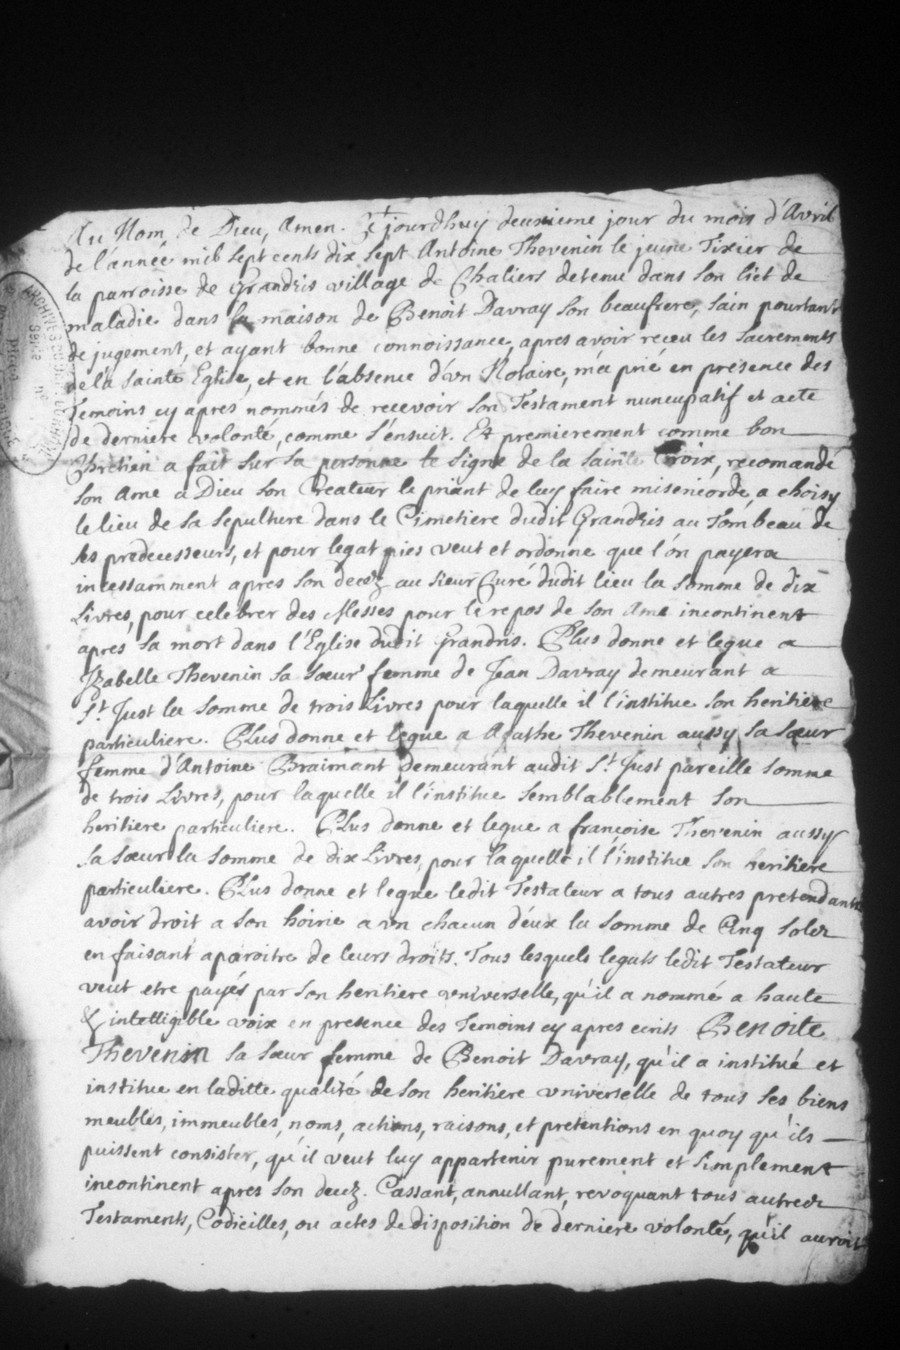 Au Nom de Dieu, Amen. Ce jourdhuy deuxieme jour du mois d'Avril
de l'année mil sept cents dix sept Antoine Thevenin le jeune Tixier de
la parroisse de Grandris village de Chaliers detenu dans son lict de
maladie dans la maison de Benoit Davray son beaufrere, sain pourtant
de jugement, et ayant bonne connoissance, apres avoir receu les sacrements
de la Sainte Eglise, et en l'absence d'vn Notaire, m'a prié en présence des
Temoins cy apres nommés de recevoir son Testament nuncupatif et acte
de derniere volonté, comme s'ensuit. Et premierement comme bon
Chrêtien a fait sur sa personne le signe de la sainte Croix, recomandé
son Ame a Dieu son Createur le priant de luy faire misericorde, a choisy
le lieu de sa sepulture dans le Cimetiere dudit Grandris au Tombeau de
ses predecesseurs, et pour legat pios veut et ordonne que l'on payera
incessamment apres son decez au sieur Curé dudit lieu la somme de dix
Livres, pour celebrer des Messes pour le repos de son Ame incontinent
apres sa mort dans l'Eglise dudit Grandris. Plus donne et legue a
Izabelle Thevenin sa soeur femme de Jean Davray demeurant a
St. Just la somme de trois Livres pour laquelle il l'institue son heritiere
particuliere. Plus donne et legue a Agathe Thevenin aussy sa soeur
femme d'Antoine Braimant demeurant audit St. Just pareille somme
de trois Livres, pour laquelle il l'institue semblablement son
heritiere particuliere. Plus donne et legue a francoise Thevenin aussy
sa soeur la somme de dix Livres, pour laquelle il l'institue son heritiere
particuliere. Plus donne et legue ledit Testateur a tous autres pretendants
avoir droit a son hoirie a vn chacun d'eux la somme de Cinq solz
en faisant aparoitre de leurs droits. Tous lesquels legats ledit Testateur
veut etre payés par son heritiere vniverselle, qu'il a nommé a haute
& intelligible voix en presence des Temoins cy apres ecrits Benoite
Thevenin sa soeur femme de Benoit Davray, qu'il a institué et
institue en laditte qualité de son heritiere vniverselle de tous ses biens
meubles, immeubles, noms, actions, raisons, et pretentions en quoy qu'ils
puissent consister, qu'il veut luy appartenir purement et simplement
incontinent apres son decez. Cassant, annullant, revoquant tous autres
Testaments, Codicilles, ou actes de disposition de derniere volonté, qu'il auroit